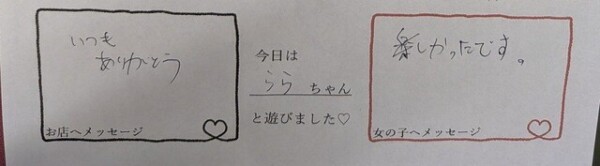 いつも
ありがとう
お店へメッセージ
今日は
らら ちゃん
と遊びました♡
楽しかったです。
女の子へメッセージ